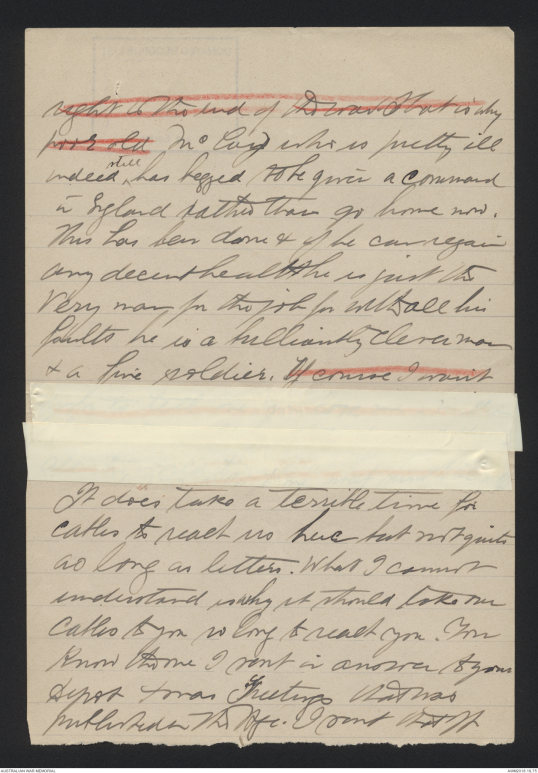 right to the end of the war. That is why
poor old McCay who is pretty ill
indeed, still has begged to be given a command
in England rather than go home now.
This has been done & if he can regain
any decent health he is just the
very man for the job for with all his
faults he is a brilliantly clever man
& a fine soldier. Of course I want
It does take a terrible time for
cables to reach us here but not quite
as long as letters. What I cannot
understand is why it should take our
cables to you so long to reach you. You
know the one I sent in answer to your
Depot Xmas Greetings that was
published in the Age. I sent that off
AUSTRALIAN WAR MEMORIAL